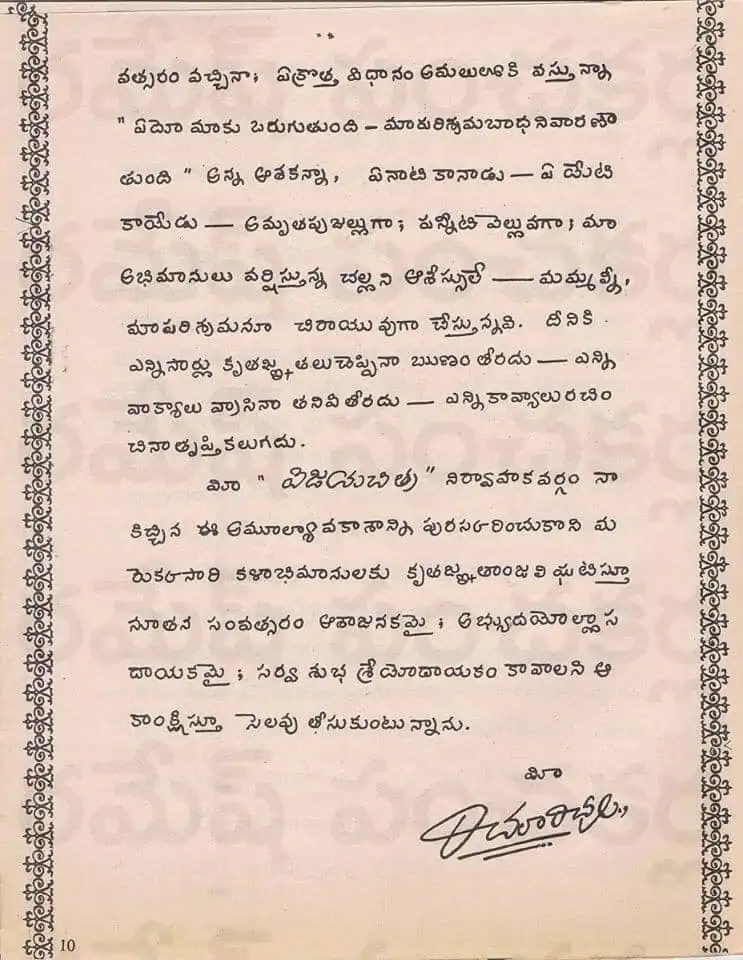 వత్సరం వచ్చినా; ఏక్రొత్త విధానం అమలులోకి వస్తున్నా
" ఏమో మాకు ఒరుగుతుంది — మాకురిశ్రమబాధనివారణౌ
తుంది " అన్న ఆశకన్నా, ఏనాటి కానాడు — ఏ యేటి
కాయేడు — అమృతపుజల్లుగా; పన్నీటి వెల్లువగా; మా
అభిమానులు వర్షిస్తున్న చల్లని ఆశీస్సులే — మమ్మల్నీ,
మాపరిశ్రమనూ చిరాయువుగా చేస్తున్నవి. దీనికి
ఎన్నిసార్లు కృతజ్ఞతలుచెప్పినా ఋణంతీరదు — ఎన్ని
వాక్యాలు వ్రాసినా తనివితీరదు — ఎన్నికావ్యాలురచిం
చినాతృప్తికలుగదు.
మీ " విజయచిత్ర " నిర్వాహకవర్గం నా
కిచ్చిన ఈ అమూల్యావకాశాన్ని పురస్కరించుకొని మ
రొకసారి కళాభిమానులకు కృతజ్ఞతాంజలి ఘటిస్తూ
నూతన సంవత్సరం ఆశాజనకమై; అభ్యుదయోల్లాస
దాయకమై; సర్వ శుభ శ్రేయోదాయకం కావాలని ఆ
కాంక్షిస్తూ సెలవు తీసుకుంటున్నాను.
మీ
10